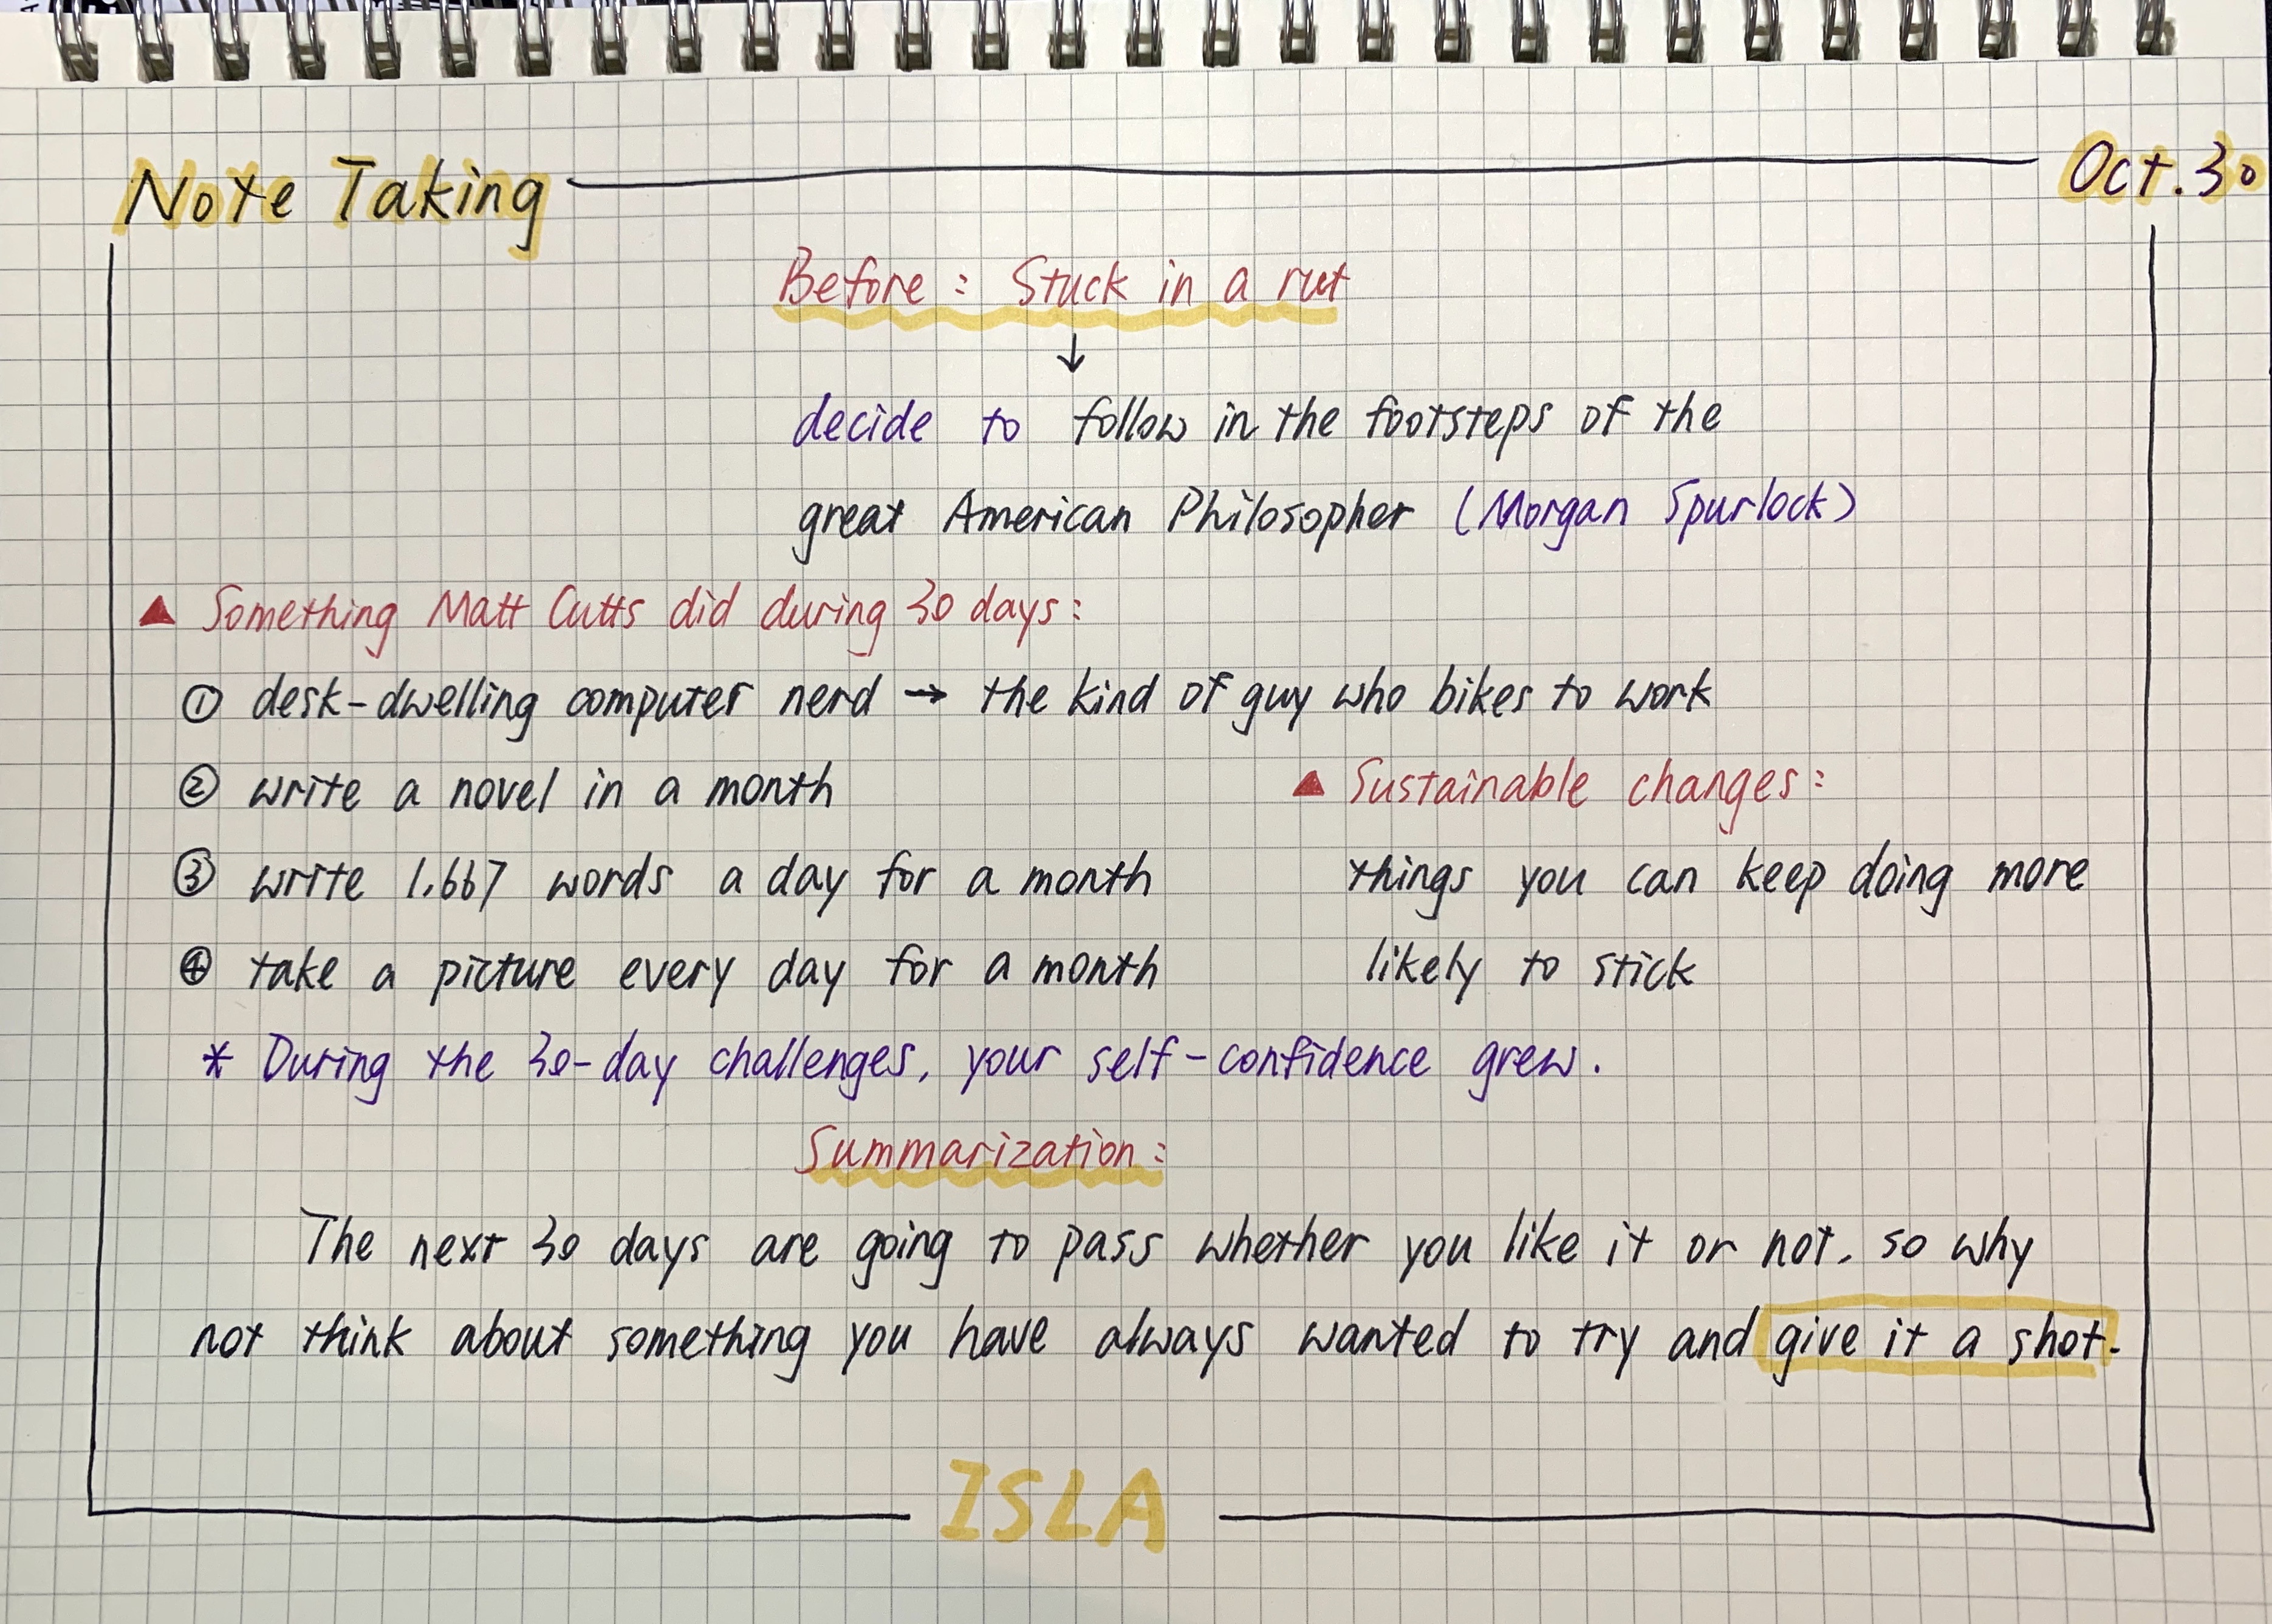 Note Taking Oct.30
Before: Stuck in a rut
↓
decide to follow in the footsteps of the
great American Philosopher (Morgan Spurlock)
▲ Something Matt Cutts did during 30 days:
① desk-dwelling computer nerd → the kind of guy who bikes to work
② write a novel in a month
③ write 1,667 words a day for a month
④ take a picture every day for a month
▲ Sustainable changes:
things you can keep doing more
likely to stick
* During the 30-day challenges, your self-confidence grew.
Summarization:
The next 30 days are going to pass whether you like it or not, so why
not think about something you have always wanted to try and give it a shot.
ISLA